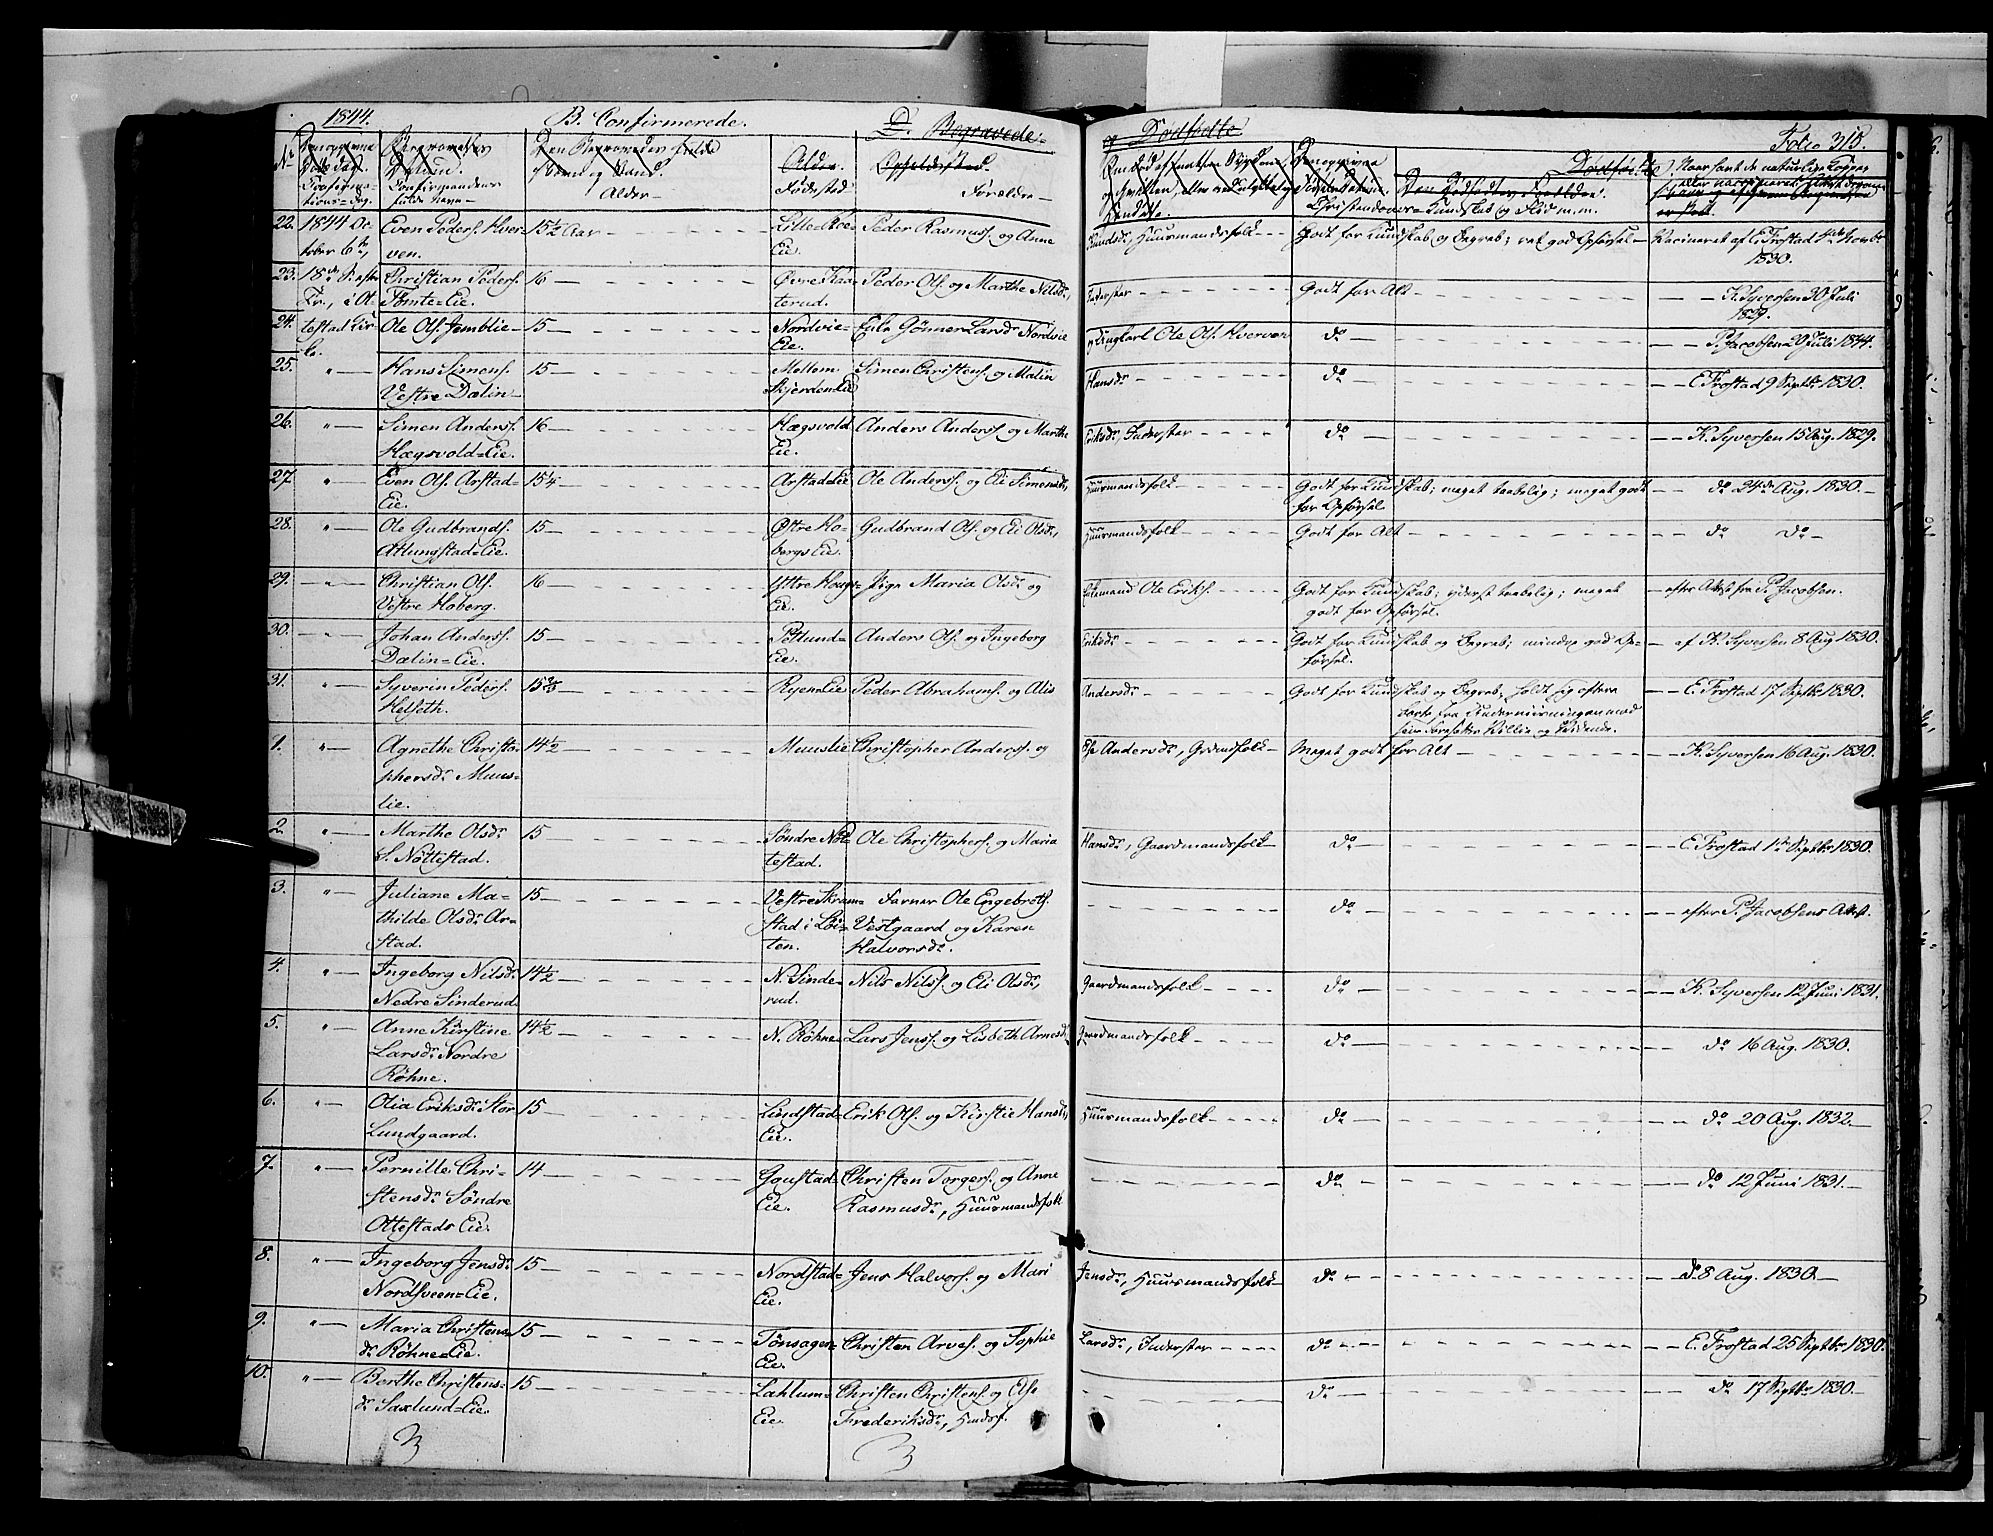 1844. B. Confirmerede. D. Begravede og Dødfødte Folio 315.
No Confirmations-Dag. Confirmandens fulde Navn Alder Fødested Forældre Christendoms-Kundskab og Flid m.m.
22. 1844 October 6te, Even Peders. Kverven. 15½ Aar Lilleskie Eie. Peder Rasmuss. og Anne Knudsdr, Huusmandsfolk Godt for Kundskab og Begreb; ret god Opførsel Vacineret af E. Frostad 4de Novbr 1830.
23. 18de S. efter Tr., i Ottestad Kirke. Christian Peders. Tomte-Eie. 16 Øvre Kaaterud. Peder Ols. og Marthe Nilsdr, Inderster Godt for Alt K. Syversen 30 Juli 1829.
24. Ole Ols. Jemblie 15 Nordvie-Eie. Enke Gønner Larsdr Nordvie og Ungkarl Ole Ols. Kverven do P. Jacobsen 20 Juli 1844.
25. " Hans Simens. Vestre Dælin 15 Mellem Skjerden Eie Simen Christens. og Malin Hansdr do E. Frostad 9 Septbr 1830.
26. " Simen Anders. Hægsvold-Eie. 16 Hægsvold Eie. Anders Anders. og Marthe Eriksdr, Inderster do K. Syversen 15 Aug. 1829.
27 " Even Ols. Arstad-Eie. 15¼ Arstad-Eie Ole Anders. og Eli Simensdr, Huusmandsfolk Godt for Kundskab; meget tarvelig; meget godt for Opførsel do 24de Aug. 1830.
28. " Ole Gudbrands. Atlungstad-Eie. 15 Østre Hobergs Eie. Gudbrand Ols. og Eli Olsdr, Huusmandsfolk Godt for Alt do do
29. " Christian Ols. Vestre Hoberg. 16 Ystre Houg-Eie. Pige Maria Olsdr og Enkemand Ole Eriks. Godt for Kundskab; yderst tarvelig; meget godt for Opførsel. efter Attest fra P. Jacobsen.
30. " Johan Anderss. Dælin-Eie. 15 Petlund-Eie. Anders Ols. og Ingeborg Eriksdr Godt for Kundskab og Begreb; mindre god Opførsel. af K. Syversen 8 Aug 1830.
31. " Syverin Peders. Helseth. 15⅔ Ryen-Eie Peder Abrahams. og Alis Andersdr Godt for Kundskab og Begreb; holdt sig oftere borte fra Underviisningen mod sine Foresattes Villie og Vidende. E. Frostad 17 Septbr 1830.
1. " Agnethe Christophersdr Muuslie. 14½ Muuslie Christopher Anders. og Else Andersdr, Gaardmandsfolk Meget godt for Alt K. Syversen 16 Aug. 1830.
2. " Marthe Olsdr S. Nöttestad. 15 Søndre Nøttestad. Ole Christophers. og Maria Hansdr, Gaardmandsfolk do E. Frostad 1ste Septbr 1830.
3. " Juliane Mathilde Olsdr Arstad. 15 Vestre Skramstad i Löiten. Farver Ole Engebrets. Vestgaard og Karen Halvorsdr. do efter P. Jacobsens Attest.
4. " Ingeborg Nilsdr Nedre Sinderud 14½ N. Sinderud. Nils Nilss. og Eli Olsdr, Gaardmandsfolk do K. Syversen 12 Juni 1831.
5. " Anne Kirstine Larsdr Nordre Röhne. 14½ N. Röhne Lars Jenss. og Lisbeth Arnesdr Gaardmandsfolk do do 16 Aug. 1830.
6. " Olia Eriksdr Stor Lundgaard. 15 Lindstad-Eie. Erik Ols. og Kirstie Hansdr, Huusmandsfolk do do 20 Aug. 1832.
7. " Pernille Christensdr Søndre Ottestads Eie. 14 Goustad Eie. Christen Torgers. og Anne Rasmusdr, Huusmandsfolk do do 12 Juni 1831.
8. " Ingeborg Jensdr Nordsveen-Eie. 15 Nordstad-Eie. Jens Halvors. og Mari Jensdr, Huusmandsfolk do do 8 Aug. 1830.
9. " Maria Christensdr Röhne-Eie. 15 Tönsagen-Eie. Christen Arves. og Sophie Larsdr, Inderster do E. Frostad 25 Septbr 1830.
10. " Berthe Christensdr Saxlund-Eie. 15 Lahlum-Eie. Christen Christens. og Else Frederiksdr, Huusf. do do 17 Septbr 1830.